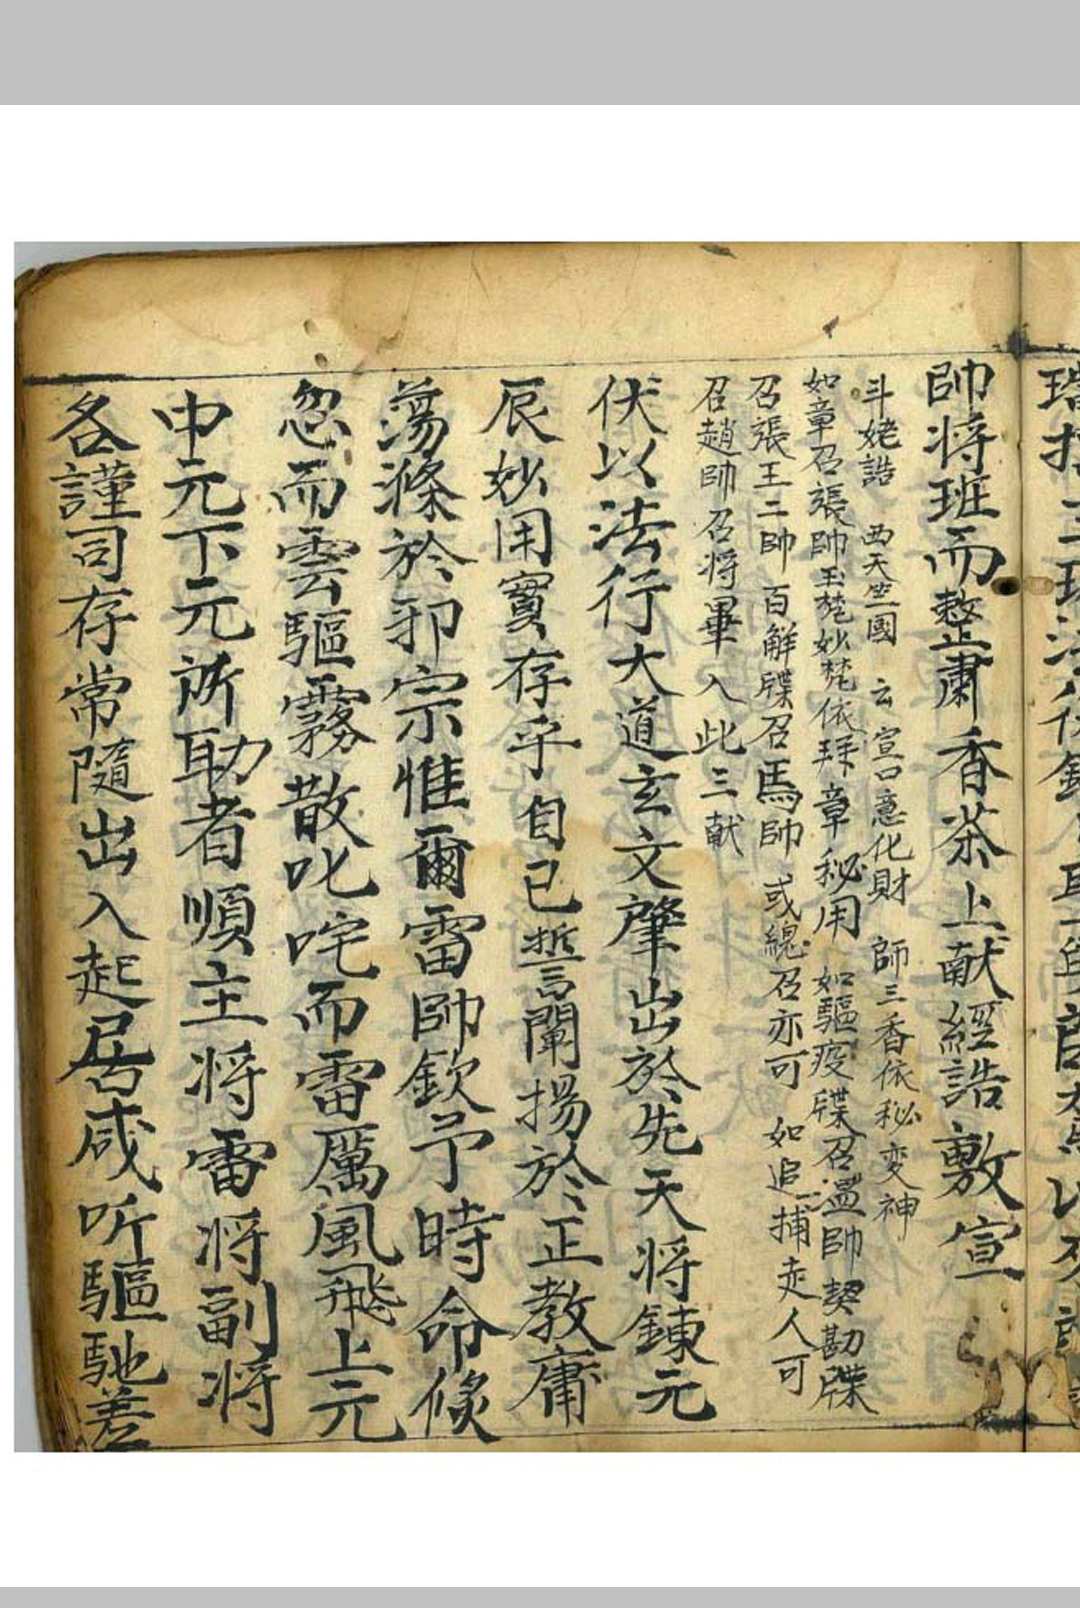 帥将班而整肅香茶上献經誥敷宣
斗姥誥 西天竺國 云宣口意化財 師三香依秘变神
如章召張帥玉梵妙梵依拜章秘用 如驅疫牒召溫帥契勘牒
召張王二帥百解牒召馬帥 或總召亦可 如追捕走人可
召趙帥召将畢入此三献
伏以法行大道玄文肇出於先天将鍊元
辰妙用寳存乎自己誓闡揚於正教庸
蕩滌於邪宗惟爾雷帥欽予時命倏
忽而雲驅霧散叱咤而雷厲風飛上元
中元下元所助者順主将雷将副将
各謹司存常隨出入起居咸听驅馳差